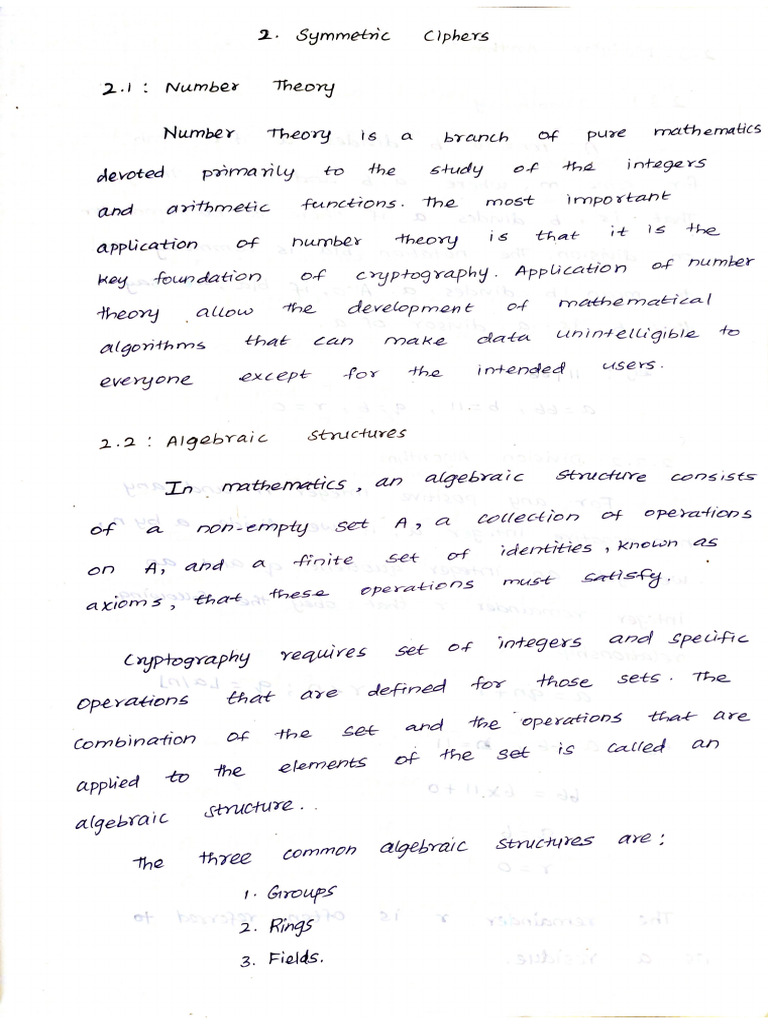 2. Symmetric Ciphers
2.1 : Number Theory
Number Theory is a branch of pure mathematics
devoted primarily to the study of the integers
and arithmetic functions. The most important
application of number theory is that it is the
key foundation of cryptography. Application of number
theory allow the development of mathematical
algorithms that can make data unintelligible to
everyone except for the intended users.
2.2 : Algebraic Structures
In mathematics, an algebraic structure consists
of a non-empty set A, a collection of operations
on A, and a finite set of identities, known as
axioms, that these operations must satisfy.
Cryptography requires set of integers and specific
operations that are defined for those sets. The
combination of the set and the operations that are
applied to the elements of the set is called an
algebraic structure..
The three common algebraic structures are:
1. Groups
2. Rings
3. Fields.